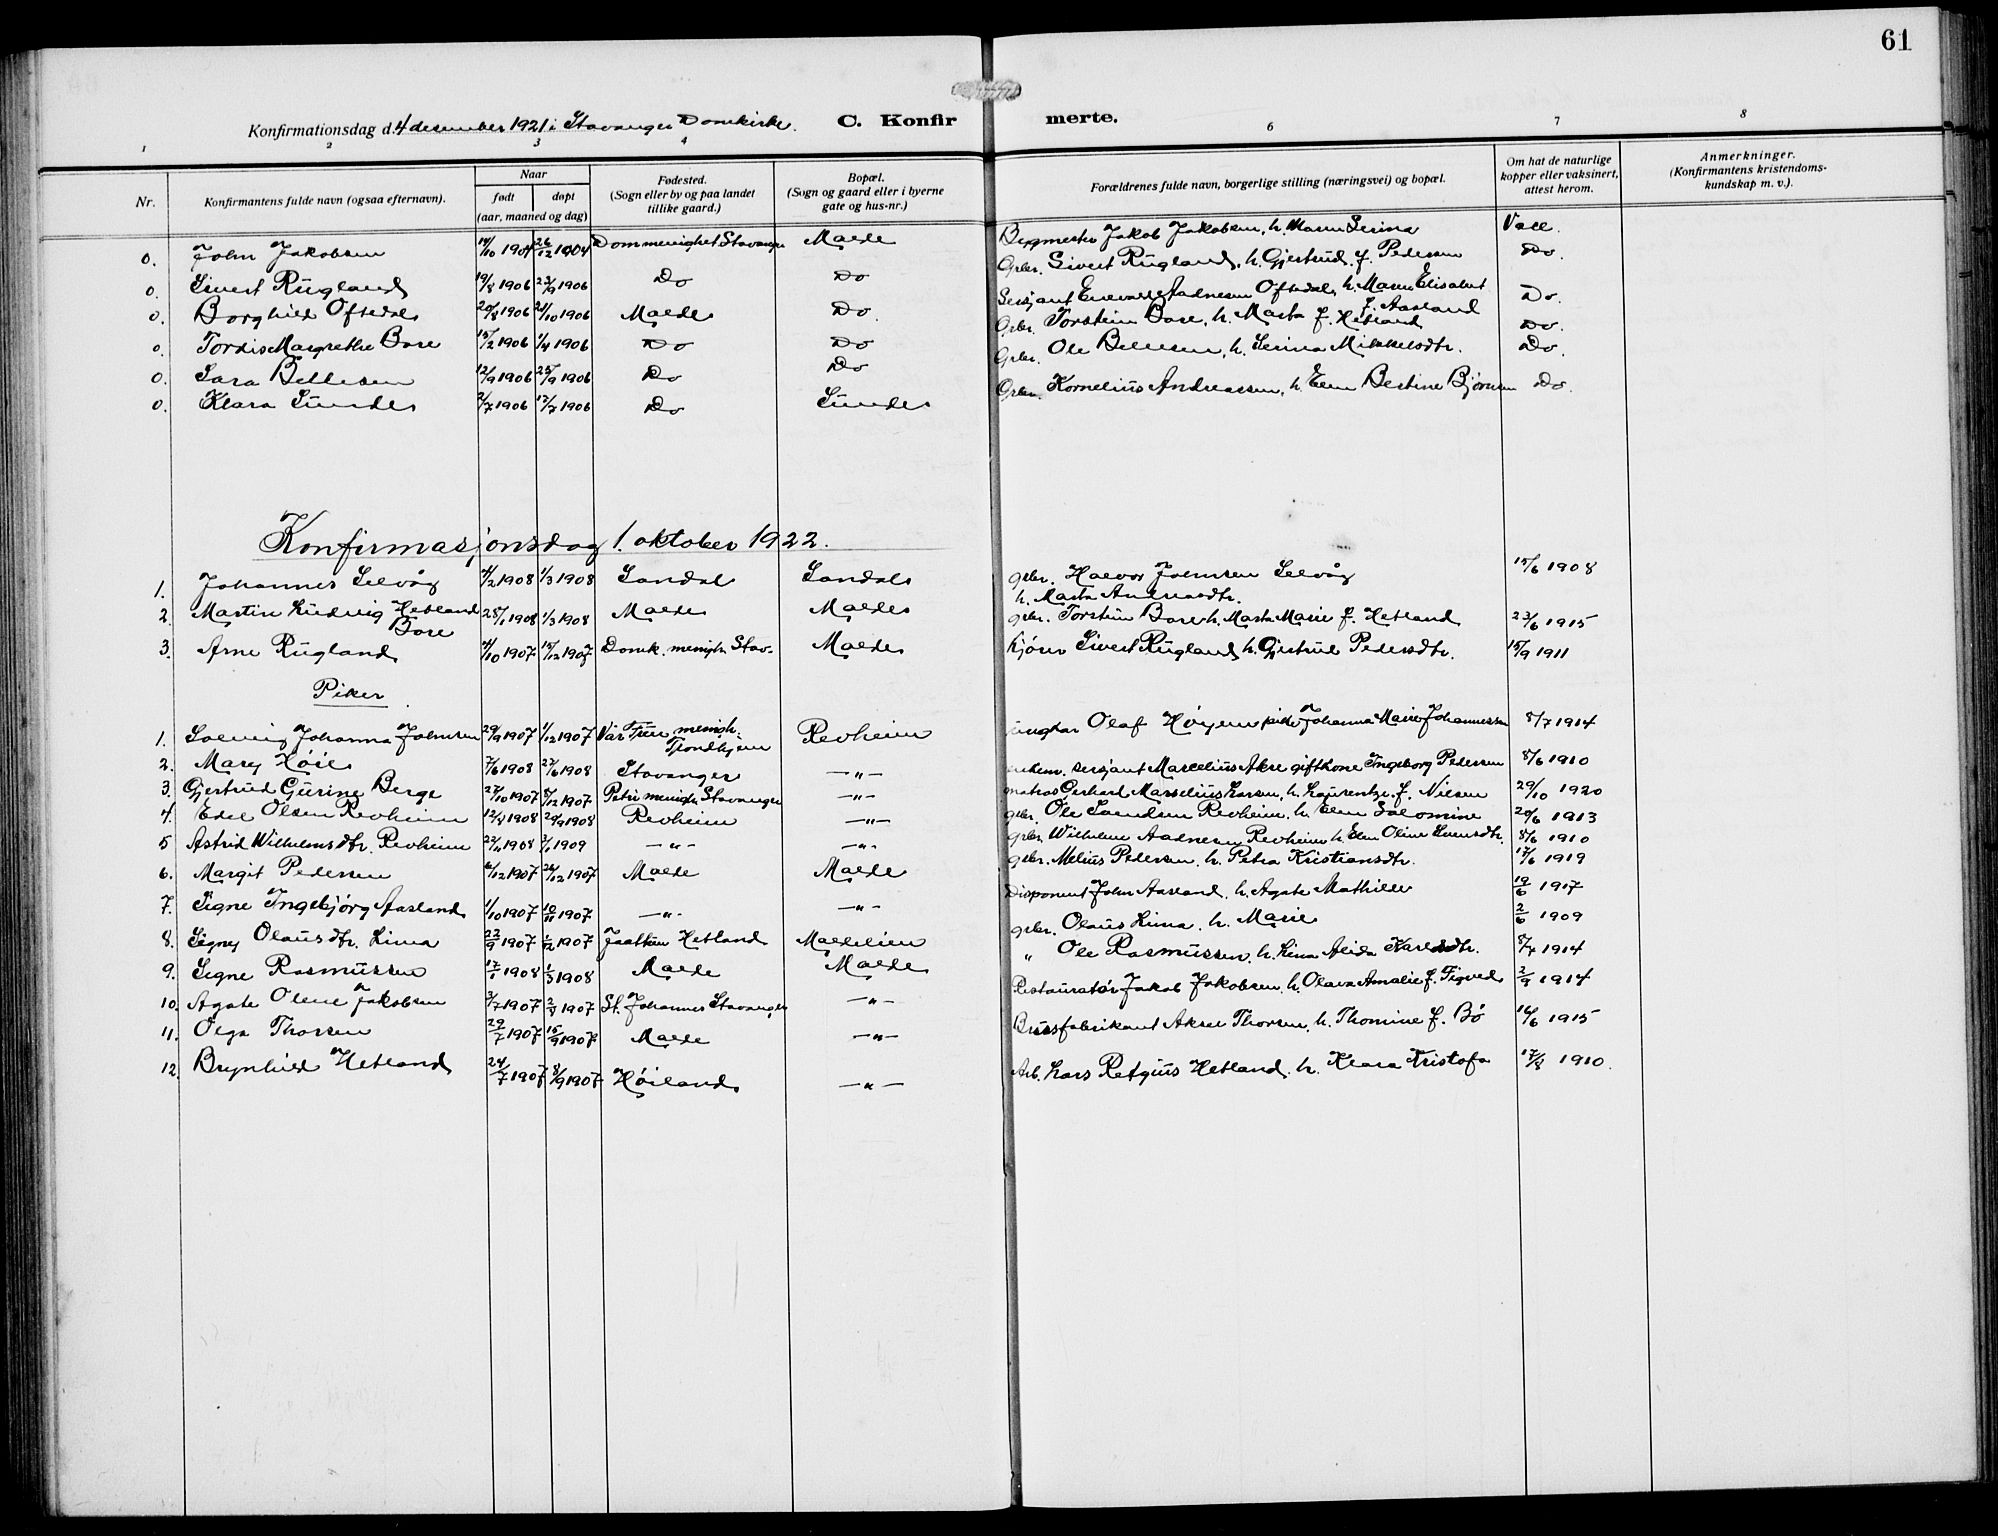 61
Konfirmationsdag d. 4 desember 1921 i Stavanger Domkirke. C. Konfirmerte.
1 2 3 4 6 7 8
Nr. Konfirmantens fulde navn (ogsaa efternavn). Naar født døpt (aar, maaned og dag) Fødested. (Sogn eller by og paa landet tillike gaard.) Bopæl. (Sogn og gaard eller i byerne gate og hus-nr.) Forældrenes fulde navn, borgerlige stilling (næringsvei) og bopæl. Om hat de naturlige kopper eller vaksinert, attest herom. Anmerkninger. (Konfirmantens kristendomskundskap m. v.).
0. John Jakobsen 14/10 1904 26/12 1904 Dommenighet Stavanger Madla Jakob Jakobsen, h. Maren Serina Vacc.
0. Sivert Rugland 19/8 1906 23/9 1906 Do Do Grbr. Sivert Rugland, h. Gjertrud f. Pedersen Do.
0. Borghild Oftedal 20/8 1906 21/10 1906 Malde Do. Sersjant Enevald Aadnesen Oftedal, h. Maren Elisabet f. Aasland Do.
0. Tordis Margrethe Bore 15/2 1906 1/4 1906 Do Do Grbr. Torstein Bore, h. Marta f. Hetland Do.
0. Sara Bellesen 12/9 1906 25/9 1906 Do Do Grbr. Ole Bellesen, h. Serina Mikkelsdtr. Do.
0. Klara Sunde 2/7 1906 17/7 1906 Do Sunde Grbr. Kornelius Andreassen, h. Elen Bertine Bjørnsen Do.
Konfirmasjonsdag 1. oktober 1922.
1. Johannes Selvåg 4/2 1908 1/3 1908 Sandal Sandal gbr. Halvor Johnsen Selvåg 15/6 1908
h. Marta Andreasdtr.
2. Martin Ludvig Hetland Bore 28/1 1908 1/3 1908 Malde Malde gbr. Torstein Bore h. Marta Marie f. Hetland 23/6 1915
3. Arne Rugland 4/10 1907 15/12 1907 Domk. menigh. Stav. Malde kjører Sivert Rugland, h. Gjertrud Pedersdtr. 15/9 1911
Piker
1. Solveig Johanna Johnsen 29/9 1907 1/12 1907 Vår Frue menigh. Trondhjem Revheim ungkar Olaf Høyem pike Johanna Marie Johannessen 8/7 1914
2. Mary Høie 7/6 1908 27/6 1908 Stavanger —"— sersjant Marcelius Akse gift kone Ingeborg Pedersen 8/6 1910
3. Gjertrud Gurine Berge 27/10 1907 8/12 1907 Petri menigh. Stavanger —"— matros Gerhard Marselius Larsen, h. Laurentze f. Nilsen 29/10 1920
4. Edel Olsen Revheim 12/8 1908 20/9 1908 Revheim —"— gbr. Ole Svendsen Revheim, h. Elen Salomine 20/6 1913
5 Astrid Wilhelmsdtr. Revheim 22/11 1908 3/1 1909 —"— —"— grbr. Wilhelm Aadnesen Revheim h. Elen Oline Svensdtr. 8/6 1910
6. Margit Pedersen 6/12 1907 26/12 1907 Malde Malde gbr. Melius Pedersen, h. Petra Kristiansdtr. 17/6 1919
7. Signe Ingebjørg Aasland 1/10 1907 10/11 1907 —"— —"— Disponent John Aasland, h. Agate Mathilde 19/6 1917
8. Signy Olausdtr. Lima 22/9 1907 1/12 1907 Jaatten Hetland Maldelien gbr. Olaus Lima, h. Marie 2/6 1909
9. Signe Rasmussen 17/1 1908 1/3 1908 Malde Malde " Ole Rasmussen, h. Lina Alida Karlsdtr. 8/7 1914
10. Agate Olene Jakobsen 3/7 1907 St. Johannes Stavanger —"— Restauratør Jakob Jakobsen, h. Olava Amalie f. Figved 2/9 1914
11. Olga Thorsen 29/7 1907 15/9 1907 Malde —"— Brusfabrikant Aksel Thorsen, h. Thomine f. Bø 16/6 1915
12. Brynhild Hetland 24/7 1907 8/9 1907 Høiland —"— Arb. Lars Refgus Hetland. h. Klara Kristofa 17/8 1910.